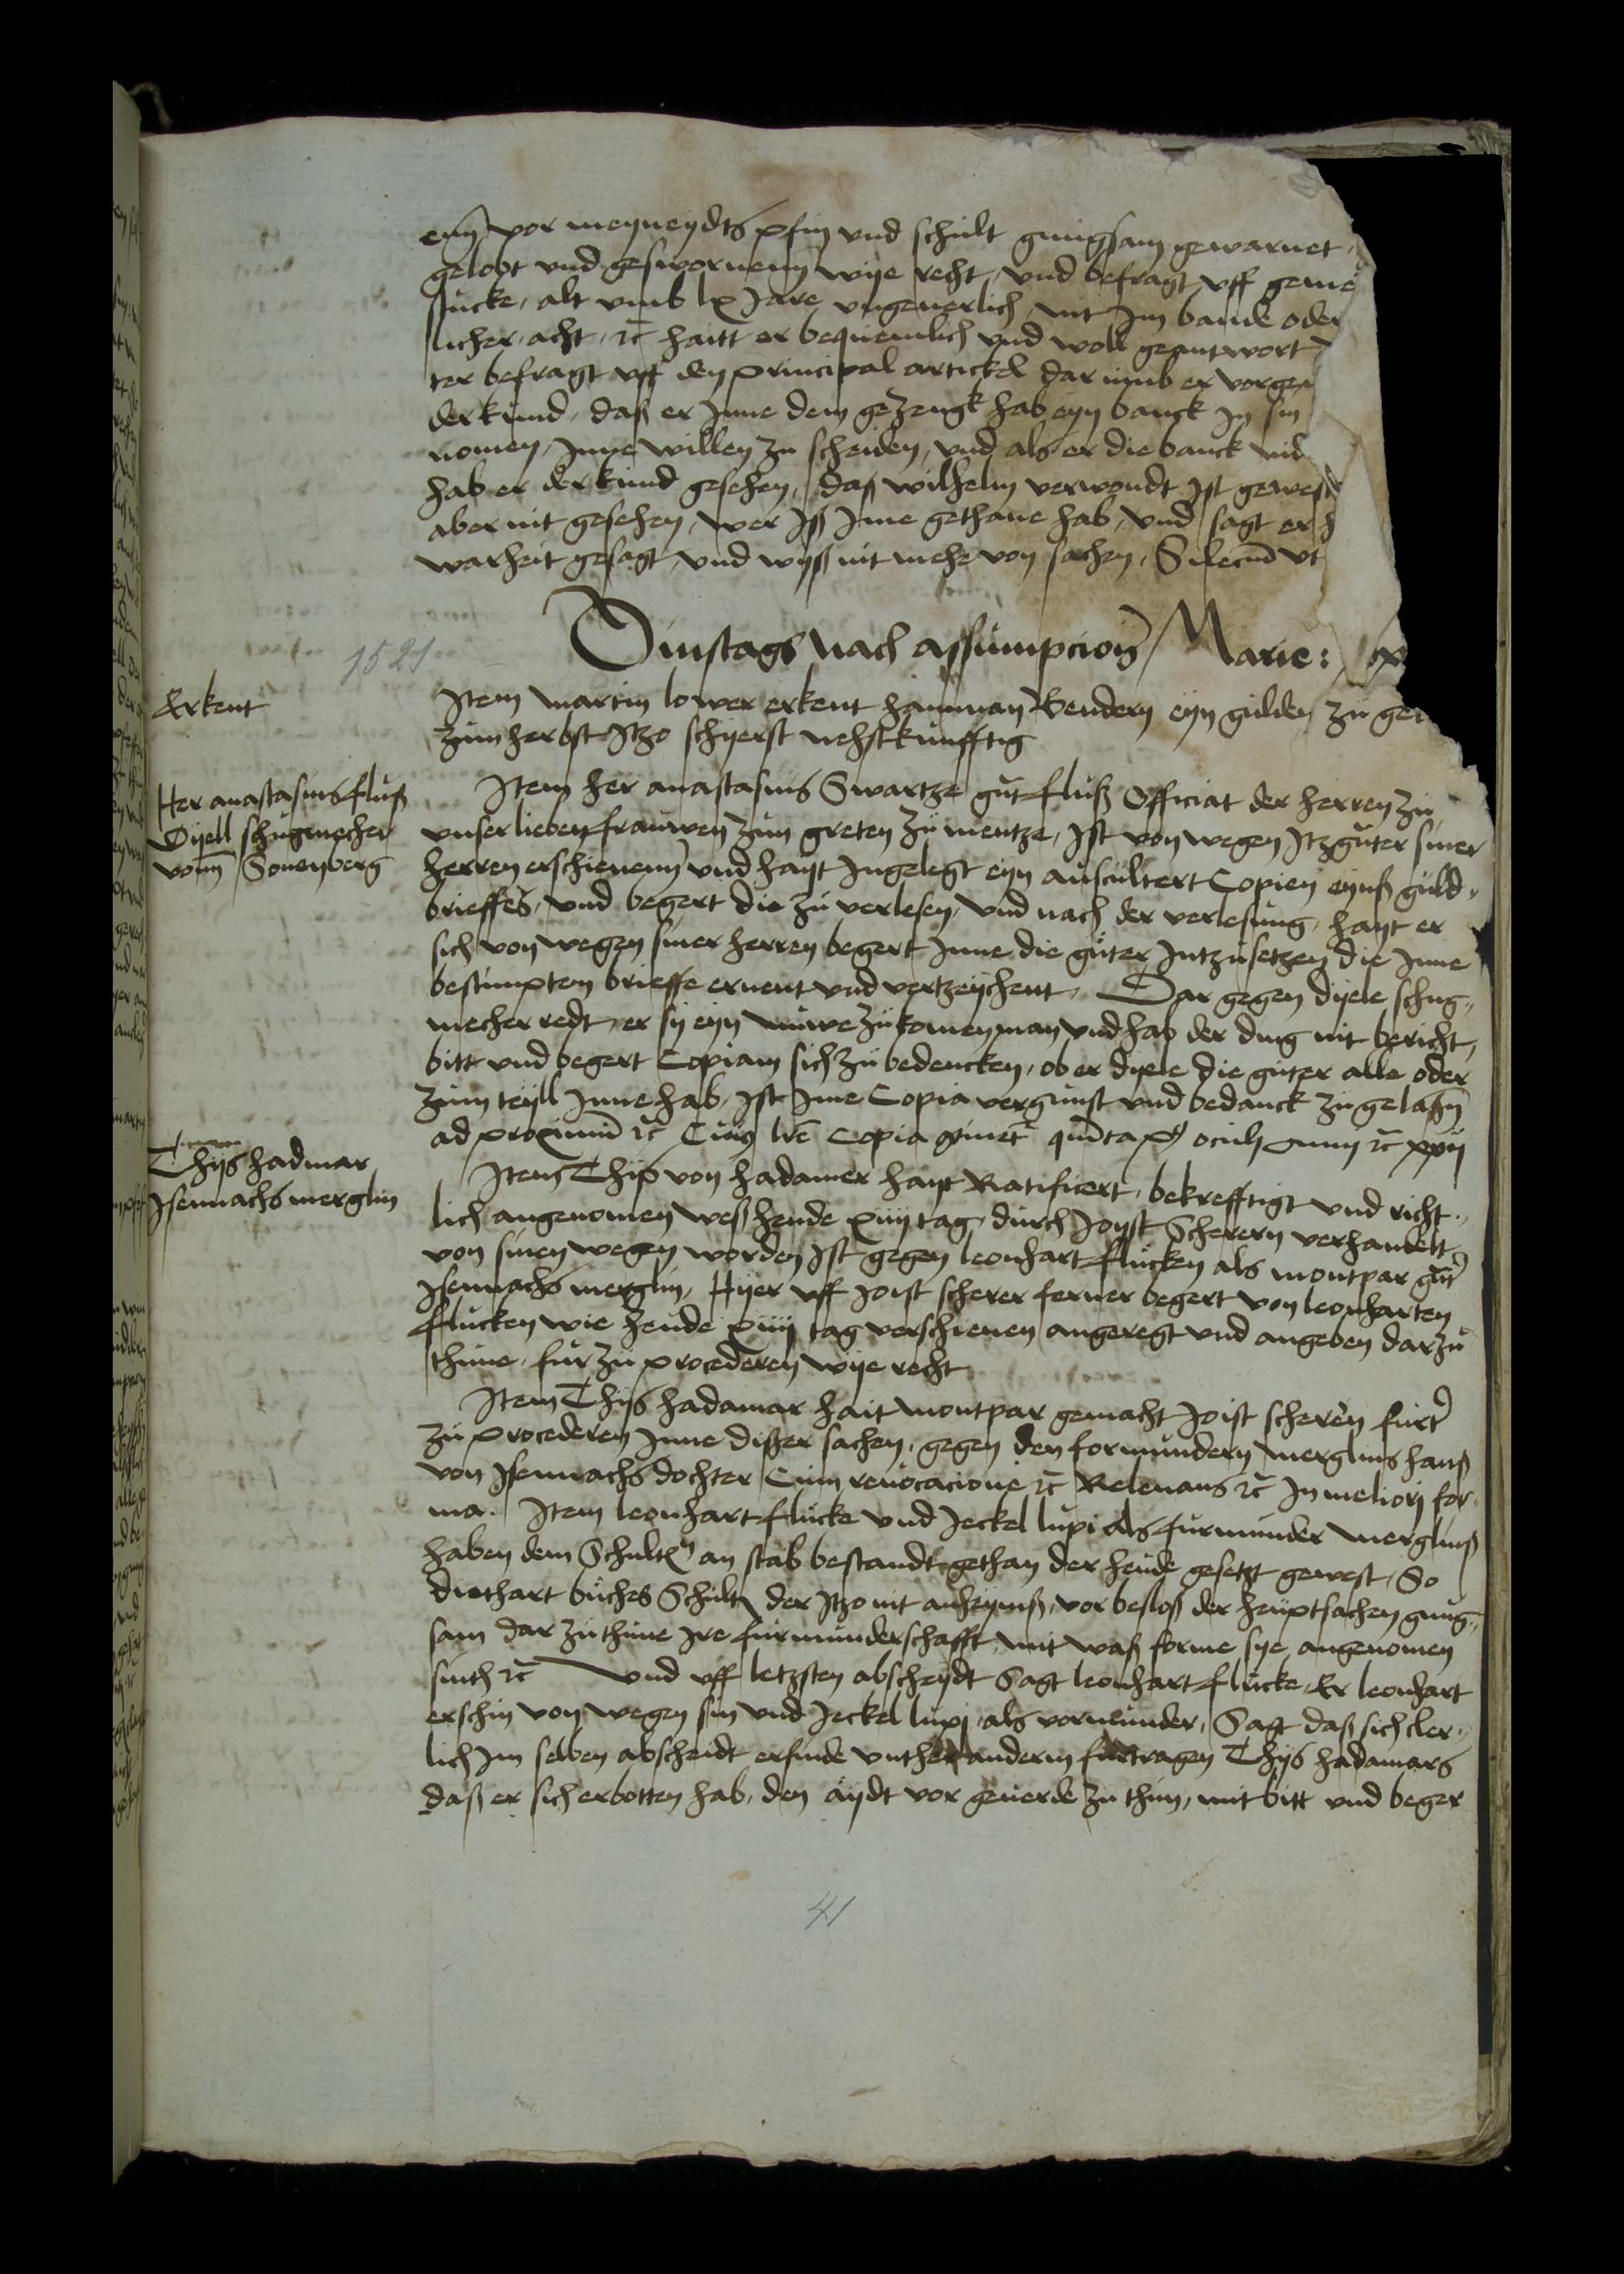 vor meyneydts pfin und schult gnugsam gewarnet
gelobt und gesworenn wye recht, und befragt uff geme
stucke, alt umb lx Jare ungeverlich, nit Im bande oder
licher acht, rc haitt er bequemlich und woll geantwort
ter befragt uff den principal artickel dar umb er vorge
der kund, daß er Inne dem gezengk hab eyn banck In sin
nomen, Inne willen zu scheiden, und als er die banck nid
hab er der kund gesehen, daß wilhelm verwondt Ist gewest
aber nit gesehen, wer Iß Ime gethane hab, und sagt er h
warheit gesagt, und wyß nit mehe von sachen, Silecium ut
1521
Dinstags Nach assumpcionis Marie:
Erkent
Item Martin lower erkent hamman Bendern eyn gulden zu ge
zum herbst Itzo schyerst nehstkunfftig
Her anastasius fluß
Dyell schugmecher
vonn Sonenberg
Item her anastasius Swartze gut fluß Officiat der herren zu
unser lieben frauwen zun greten zu mentze, Ist von wegen Itzguter siner
herren erschienenn und hayt Ingelegt eyn auscultert Copien eynß guld-
brieffes, und begert die zu verlesen, und nach der verlesung, hayt er
sich von wegen siner herren begert Inne die guter Intzusetzen die Inne
bestimpten brieffe ernent und vertzeychent. Dar gegen dyele schug-
mecher redt, er sy eyn nuwe zukomen man und hab der ding nit bericht,
bitt und begert Copiam sich zu bedencken, ob er dyele die guter alle oder
zum teyll Inne hab, Ist Ime Copia vergunst und bedanck zugelaßen
ad proximum rc Cuius lre Copia quinta oculi anni rc xxij
Thyß hadmar
Isennachs merglin
Item Thyß von hadamer hayt Ratificert, bekrefftigt und richt-
lich angenomen weß heude xiiij tag durch Joyst Scherern verhandelt
von sinen wegen worden Ist gegen leonhart flucken als montpar gut
Isennachs merglin, Hyer uff Joist scherer ferner begert von leonharten
flucken wie heude xiiij tag verschienen angeregt und angeben darzu
thune, fur zu procederen wye recht
Item Thyß hadamar hait montpar gemacht Joist scheren furt
zu procederen Inne disser sachen, gegen den formundern merglins hanß
von Isennachs dochter Cum revocacione rc Relevans rc In meliori for-
ma. Item leonhart flucke und Jeckel lupi als furmunder merglinß
haben dem Schult an stab bestandt gethan der heude gesetzt gewest, So
diethart buches Schult der Itzo nit anheymß, vor besloß der heuptsachen gnug-
sam dar zu thune Ire furmunderschafft mit waß forme sye angenomen
sinth rc Und uff letzsten abscheydt Sagt leonhart flucke, Er leonhart
erschin von wegen sin und Jeckel lupi als vormunder, Sagt daß sich cler-
lich Im selben abscheidt erfinde unther anderm furtragen Thyß hadamars
daß er sich erbotten hab, den aydt vor geuerde zu thun, mit bitt und beger
41